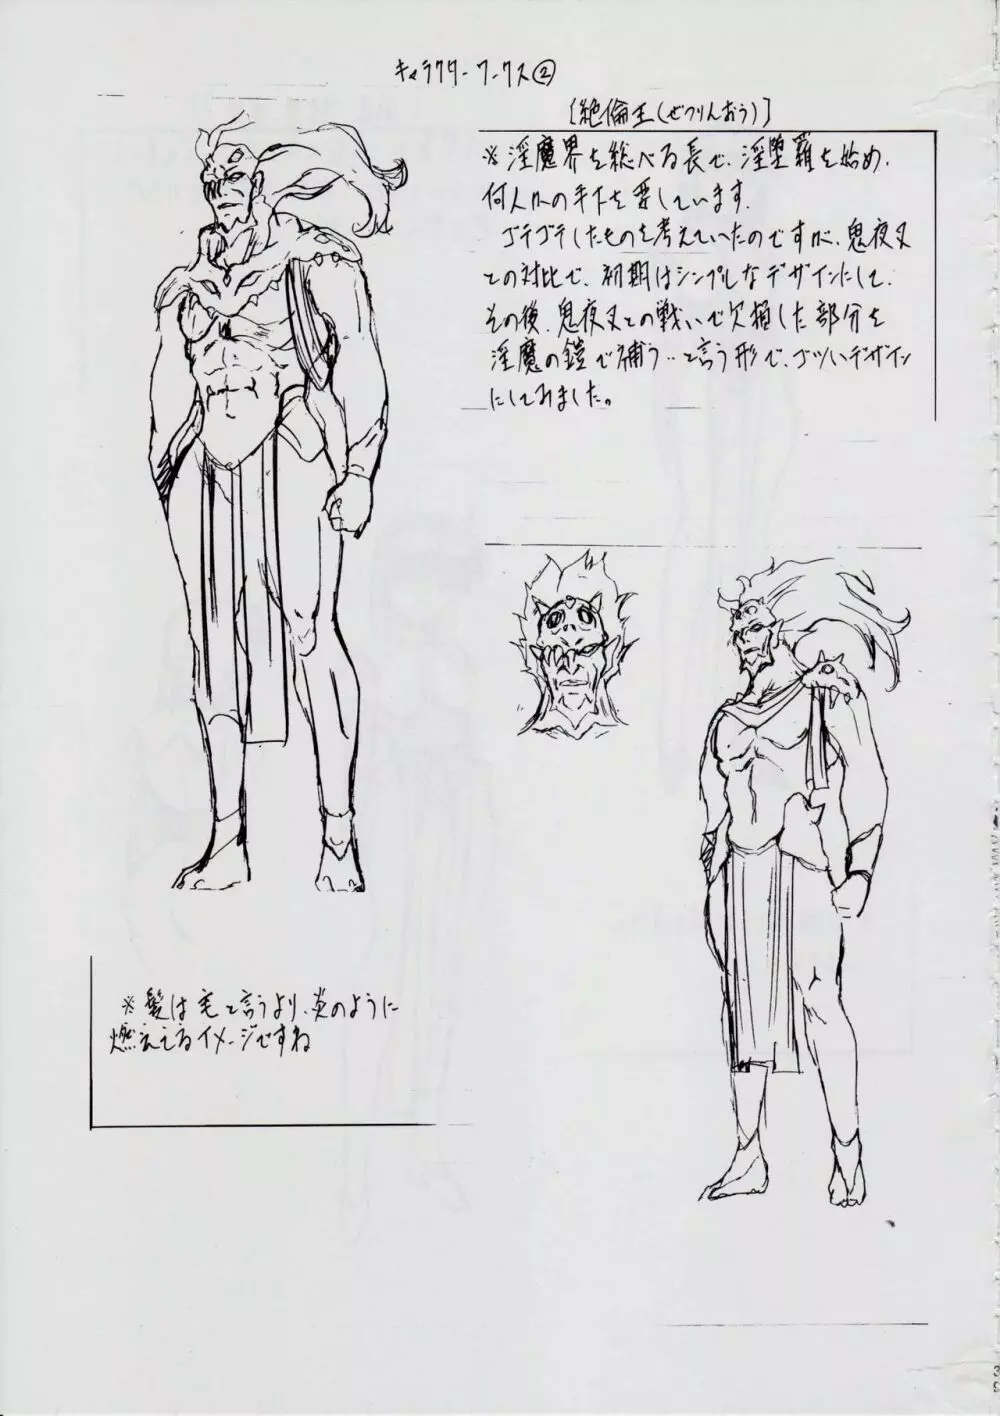 キャラクターワークス②
[絶倫王(ぜつりんおう)]
※淫魔界を総べる長で、淫堕羅を始め、
何人かの手下を要しています。
ゴテゴテしたものを考えていたのですが、鬼夜叉
との対比で、初期はシンプルなデザインにして、
その後、鬼夜叉との戦いで欠損した部分を
淫魔の鎧で補う‥と言う形で、ゴツいデザイン
にしてみました。
※髪は毛と言うより、炎のように
燃えてるイメージですね